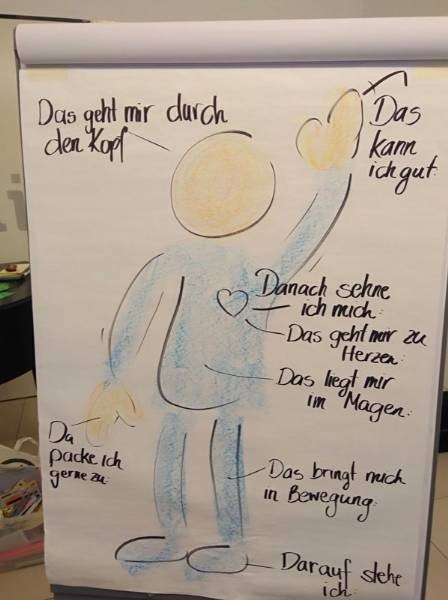 Das geht mir durch
den Kopf
Das
kann
ich gut.
Danach sehne
ich mich.
Das geht mir zu
Herzen.
Das liegt mir
im Magen.
Da
packe ich
gerne zu.
Das bringt mich
in Bewegung.
Darauf stehe
ich.